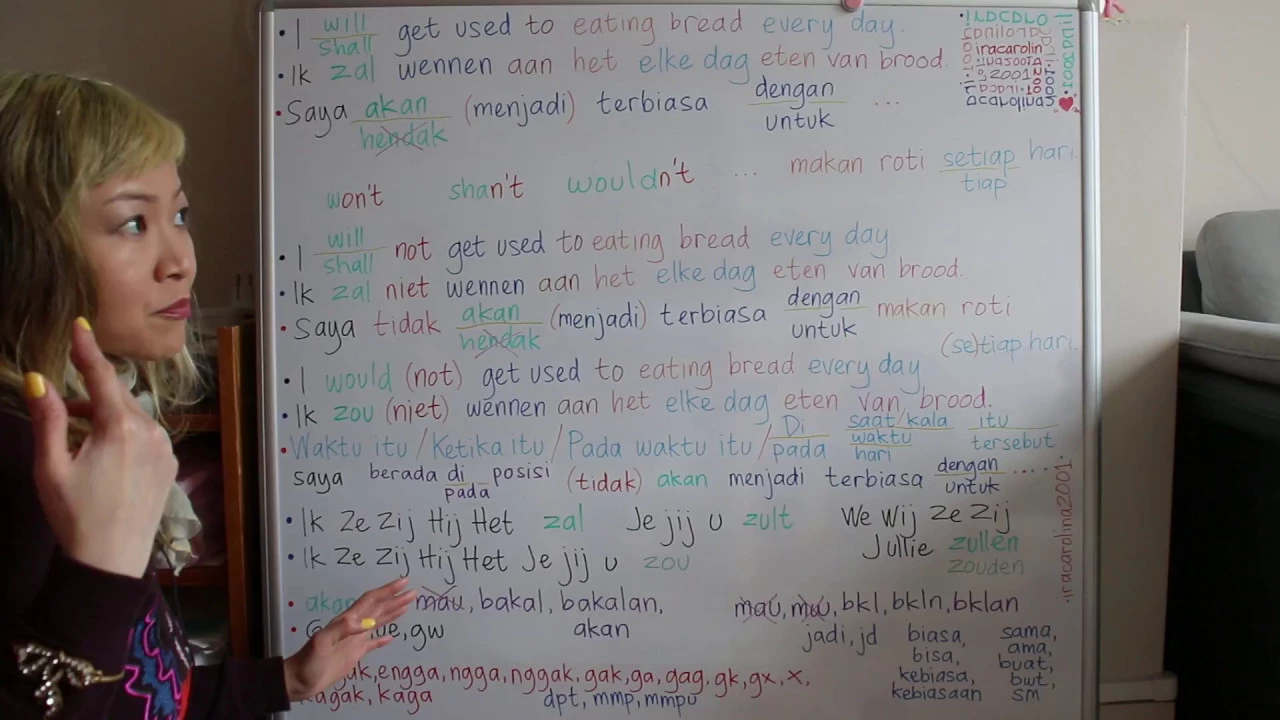 • I will/shall get used to eating bread every day.
• Ik zal wennen aan het elke dag eten van brood.
• Saya akan/hendak (menjadi) terbiasa dengan/untuk ...
makan roti setiap/tiap hari.
won't shan't wouldn't ...
• I will/shall not get used to eating bread every day
• Ik zal niet wennen aan het elke dag eten van brood.
• Saya tidak akan/hendak (menjadi) terbiasa dengan/untuk makan roti
(se)tiap hari.
• I would (not) get used to eating bread every day.
• Ik zou (niet) wennen aan het elke dag eten van brood.
• Waktu itu / Ketika itu / Pada waktu itu / Di/pada saat/kala/waktu/hari itu/tersebut
saya berada di/pada posisi (tidak) akan menjadi terbiasa dengan/untuk ....
• Ik Ze Zij Hij Het zal Je jij u zult We Wij Ze Zij
Jullie zullen
• Ik Ze Zij Hij Het Je jij u zou zouden
• akan mau, bakal, bakalan, mau, mau, bkl, bkln, bklan
gw akan jadi, jd biasa, sama,
bisa, ama,
engga, ngga, nggak, gak, ga, gag, gk, gx, x, kebiasa, buat,
kagak, kaga dpt, mmp, mmpu kebiasaan bwt,
sm
iracarolin
• iracarolina2001 •